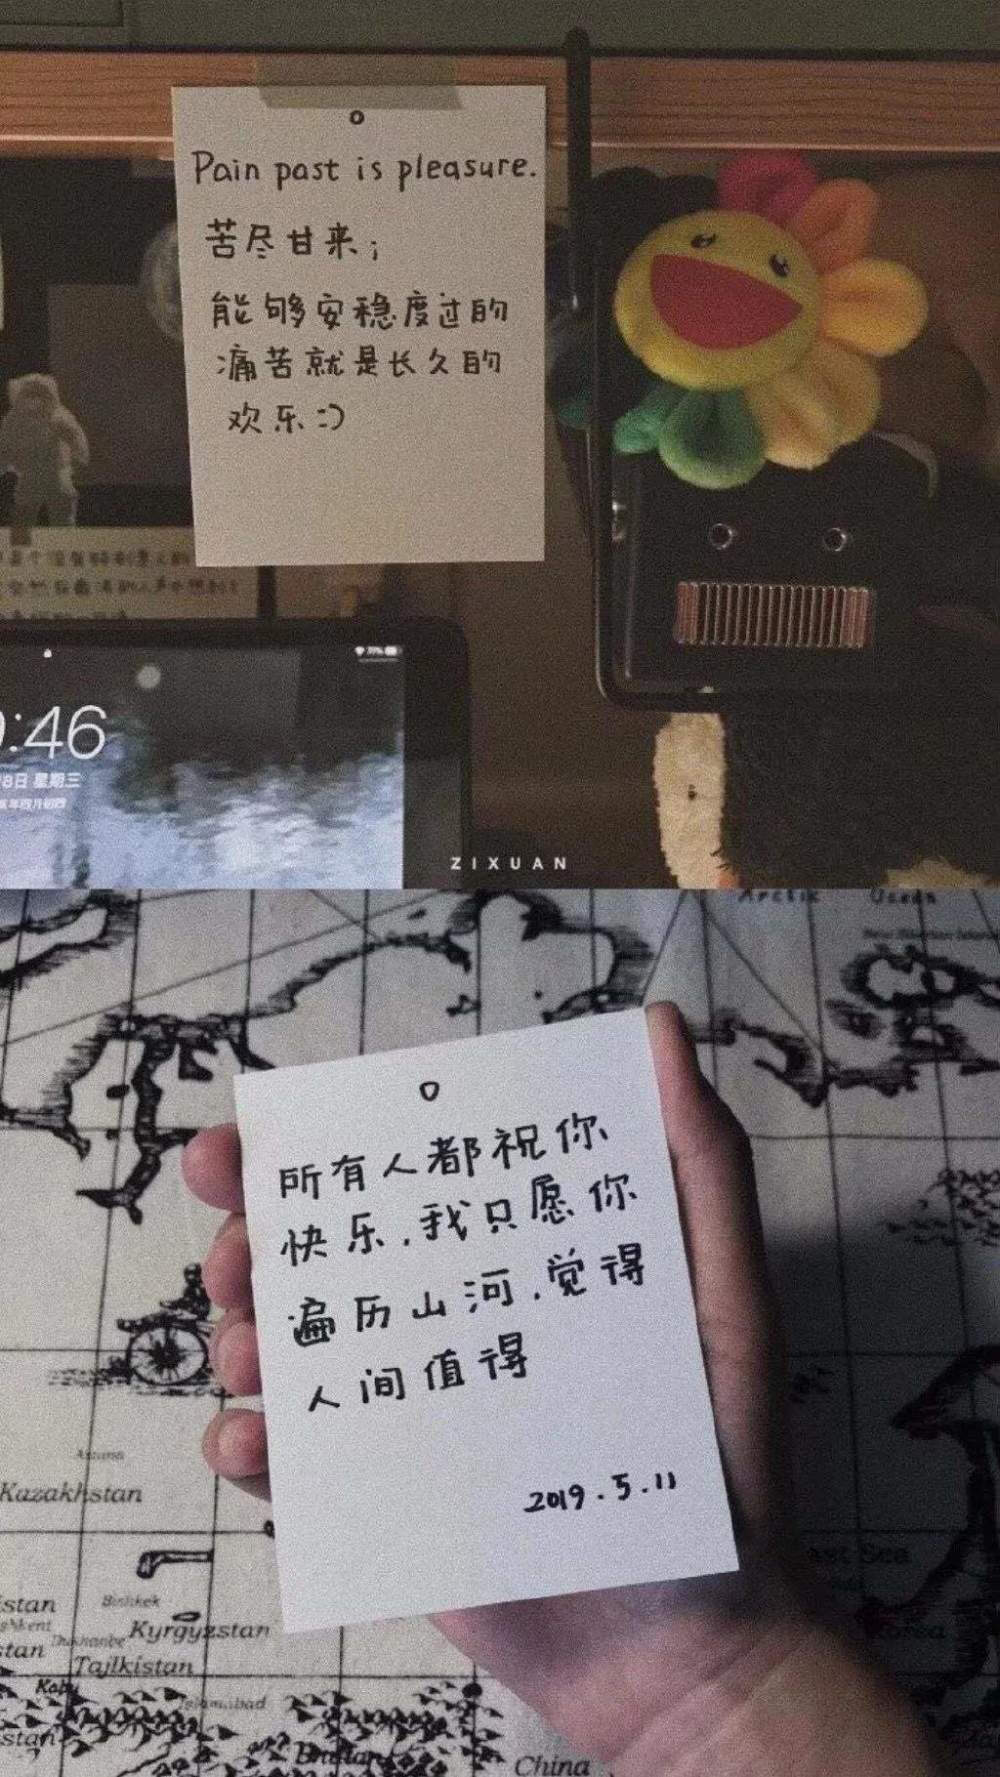 Pain past is pleasure.
苦尽甘来;
能够安稳度过的
痛苦就是长久的
欢乐:)
:46
8日 星期三
ZIXUAN
Arctic Ocean
所有人都祝你
快乐.我只愿你
遍历山河.觉得
人间值得
2019.5.11
Astana
Kazakhstan
Bishkek
Kyrgyzstan
Dushanbe
Tajikistan
Islamabad
China